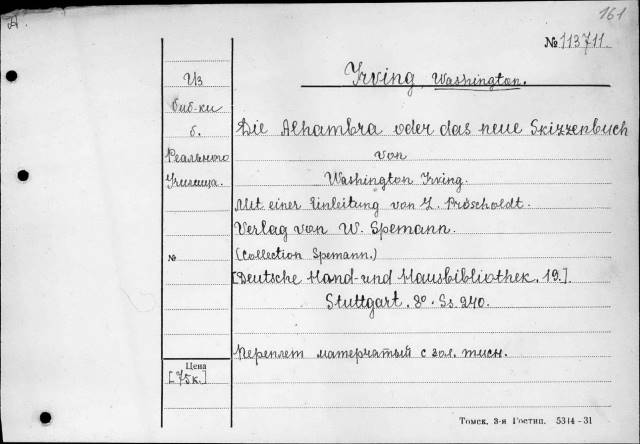 161
№ 113711.
Irving, Washington.
Из
биб-ки
б.
Реального
Училища.
Die Alhambra oder das neue Skizzenbuch
von
Washington Irving.
Mit einer Einleitung von L. Pröscholdt.
Verlag von W. Spemann.
№
(Collection Spemann.)
[Deutsche Hand- und Hausbibliothek. 19.]
Stuttgart. 8°. Ss. 240.
Переплет матерчатый с зол. тисн.
Цена
[75к.]
Томск, 3-я Гостип. 5314-31